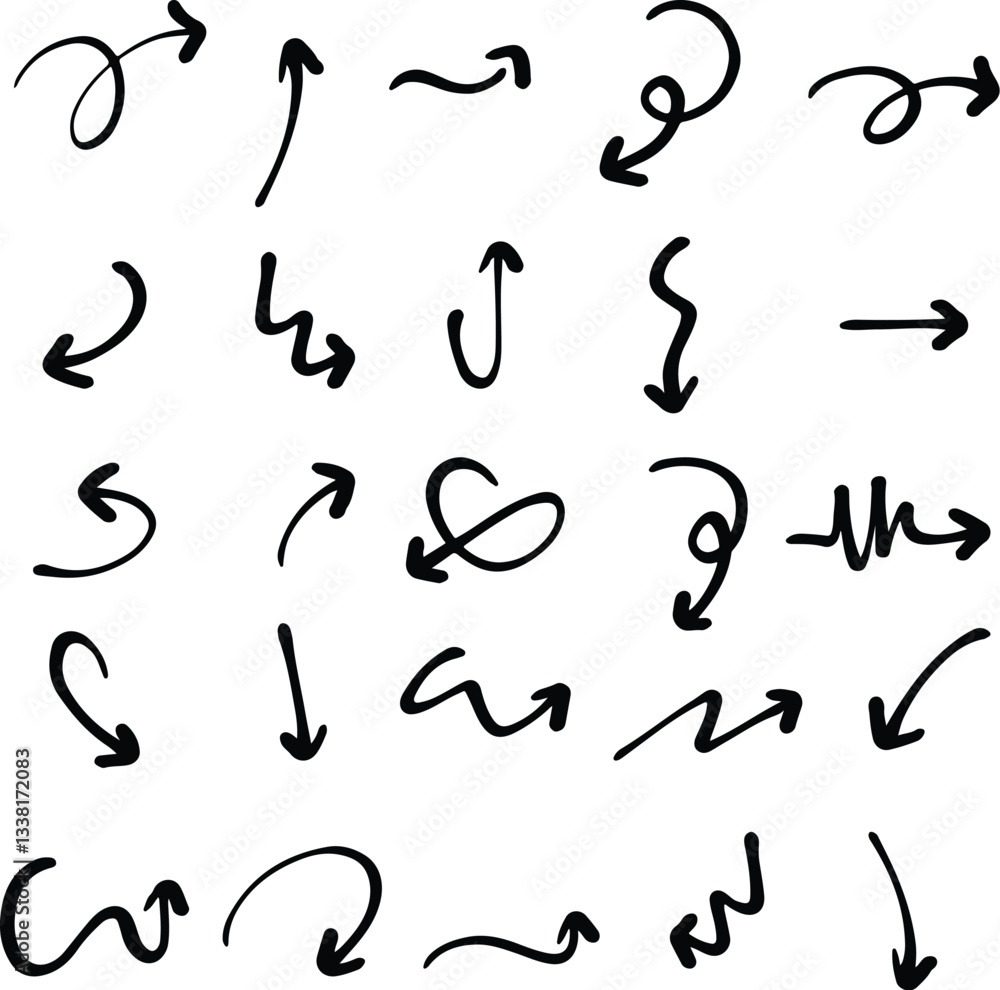 Adobe Stock | #1338172083